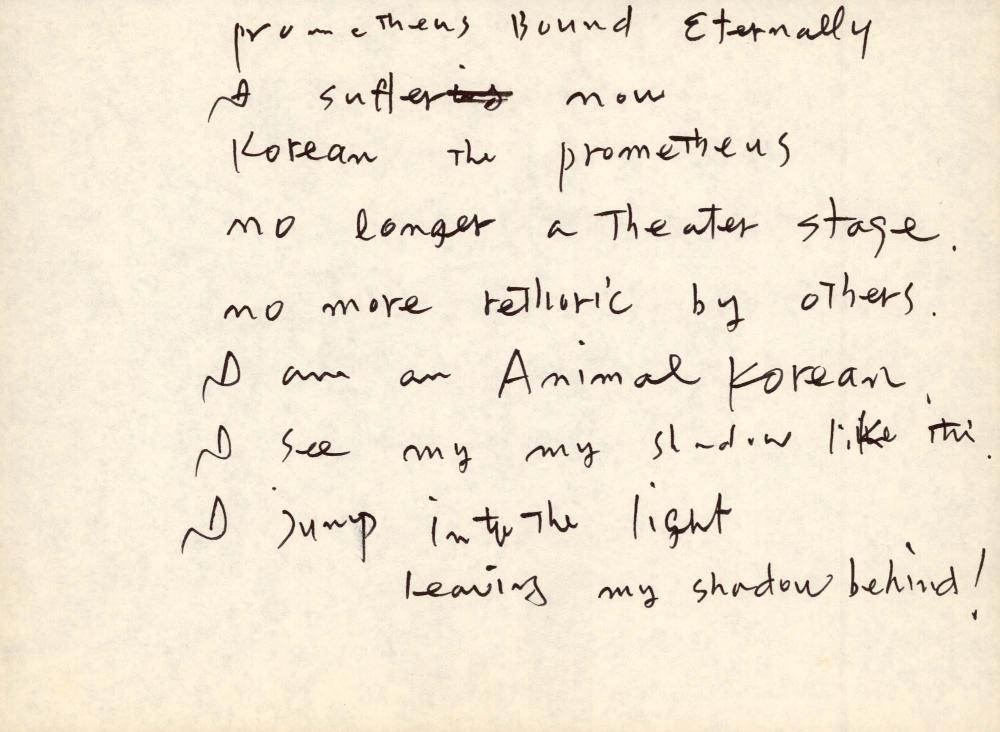 prometheus Bound Eternally
I suffer now
Korean the prometheus
no longer a Theater stage.
no more rethoric by others.
I am an Animal Korean.
I see my my shadow like
I jump into the light
leaving my shadow behind!